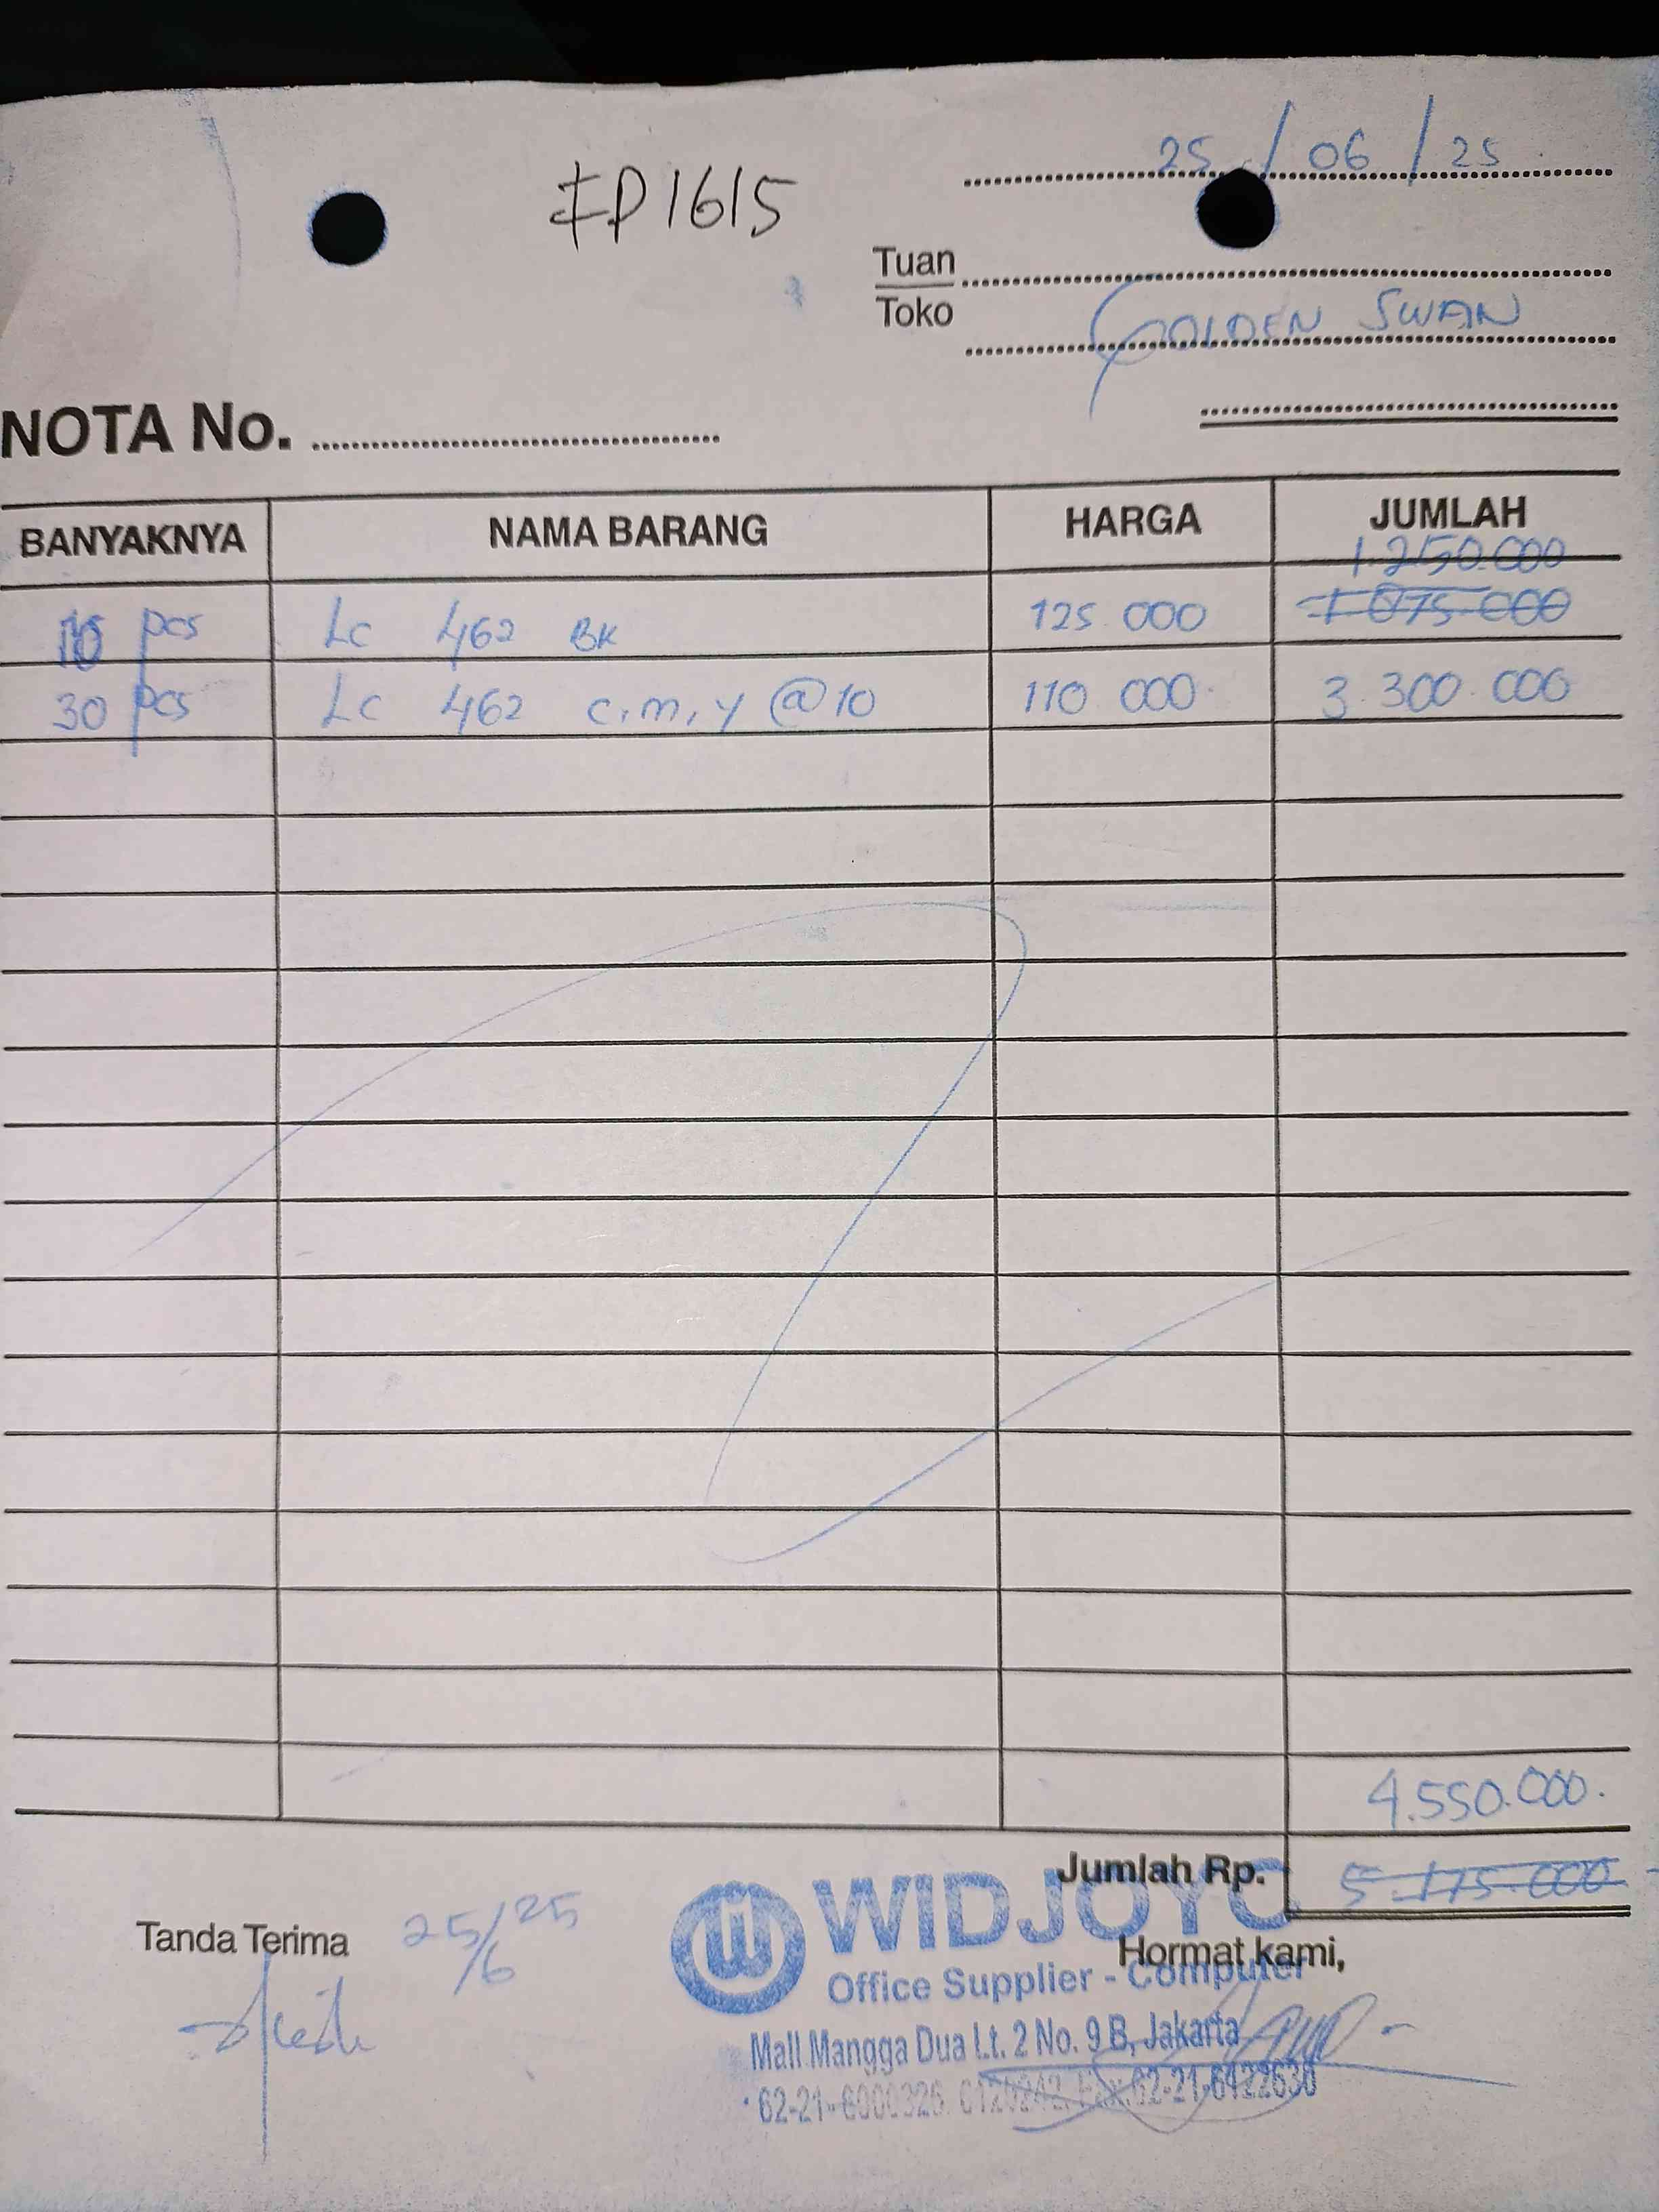 25/06/25
FP1615
Tuan
Toko
GOLDEN SWAN
NOTA No.
BANYAKNYA NAMA BARANG HARGA JUMLAH
1.250.000
10 pcs Lc 462 BK 125 000
30 pcs Lc 462 c,m,y @10 110 000 3.300.000
4.550.000.
Jumlah Rp. 5.175.000
WIDJOYO
Tanda Terima 25/6 25
Hormat kami,
Office Supplier - Computer
Mall Mangga Dua Lt. 2 No. 9 B, Jakarta
Fax.62-21-6122630